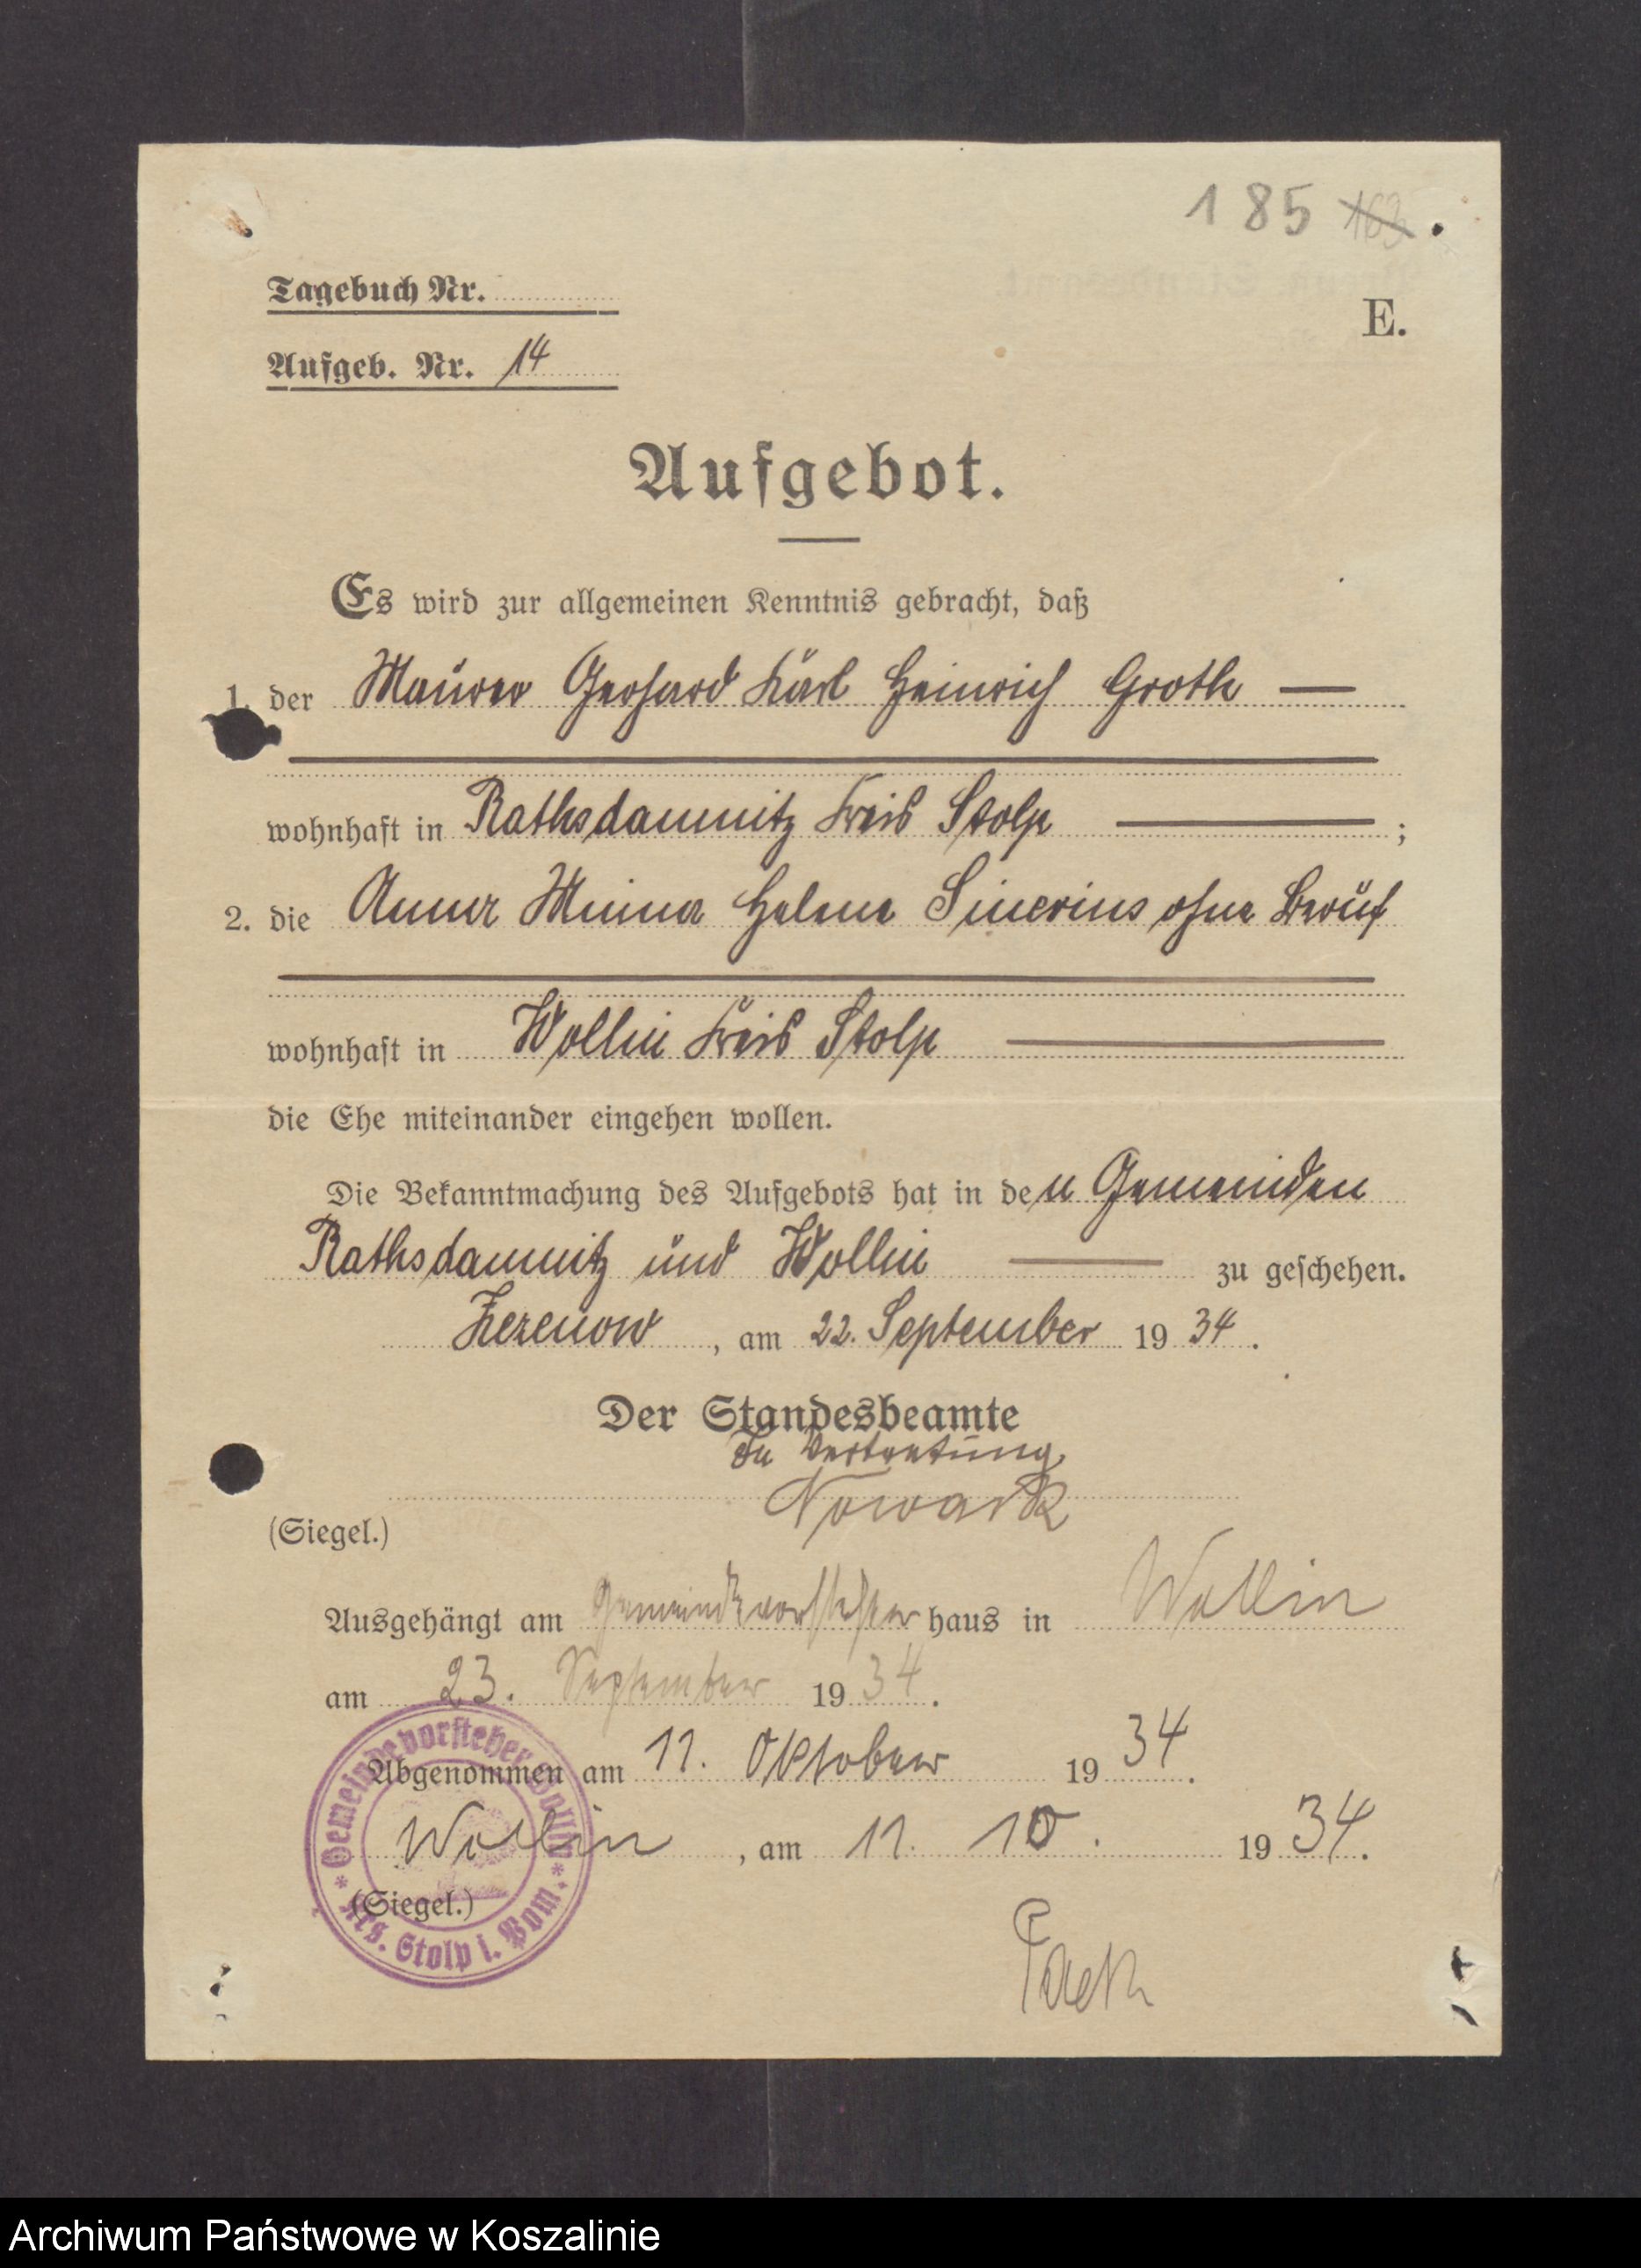 185 163
Tagebuch Nr.
E.
Aufgeb. Nr. 14
Aufgebot.
Es wird zur allgemeinen Kenntnis gebracht, daß
1. der Maurer Gerhard Karl Heinrich Groth —
wohnhaft in Rathsdamnitz Kreis Stolp — ;
2. die Anna Minna Helene Sinerius ohne Beruf
wohnhaft in Wollin Kreis Stolp —
die Ehe miteinander eingehen wollen.
Die Bekanntmachung des Aufgebots hat in den Gemeinden
Rathsdamnitz und Wollin — zu geschehen.
Zezenow, am 22. September 1934.
Der Standesbeamte
In Vertretung
Nowack
(Siegel.)
Ausgehängt am Gemeindevorsteher haus in Wollin
am 23. September 1934.
Abgenommen am 11. Oktober 1934.
Wollin, am 11. 10. 1934.
(Siegel.)
Gemeindevorsteher Wollin
* Krs. Stolp i. Pom. *
Archiwum Państwowe w Koszalinie